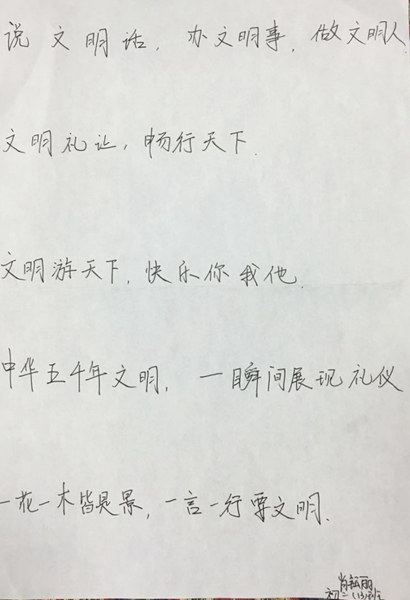 说文明话，办文明事，做文明人
文明礼让，畅行天下.
文明游天下，快乐你我他.
中华五千年文明，一瞬间展现礼仪
一花一木皆是景，一言一行要文明.
初二(13)班